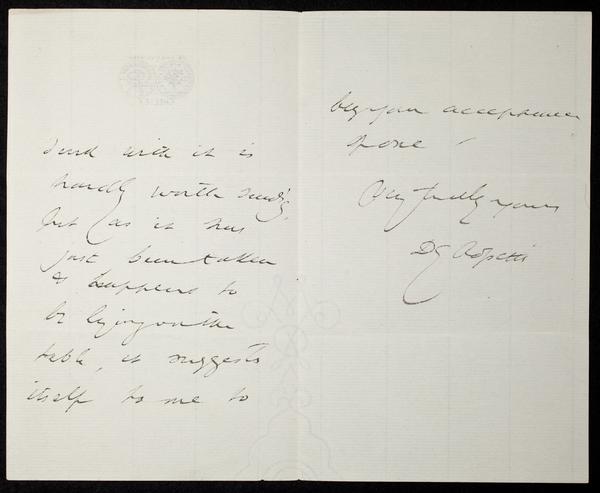 send with it is
hardly worth sending,
but (as it has
just been taken
& happens to
be lying on the
table, it suggests
itself to me to
beg your acceptance
of one
Very truly yours
DG Rossetti